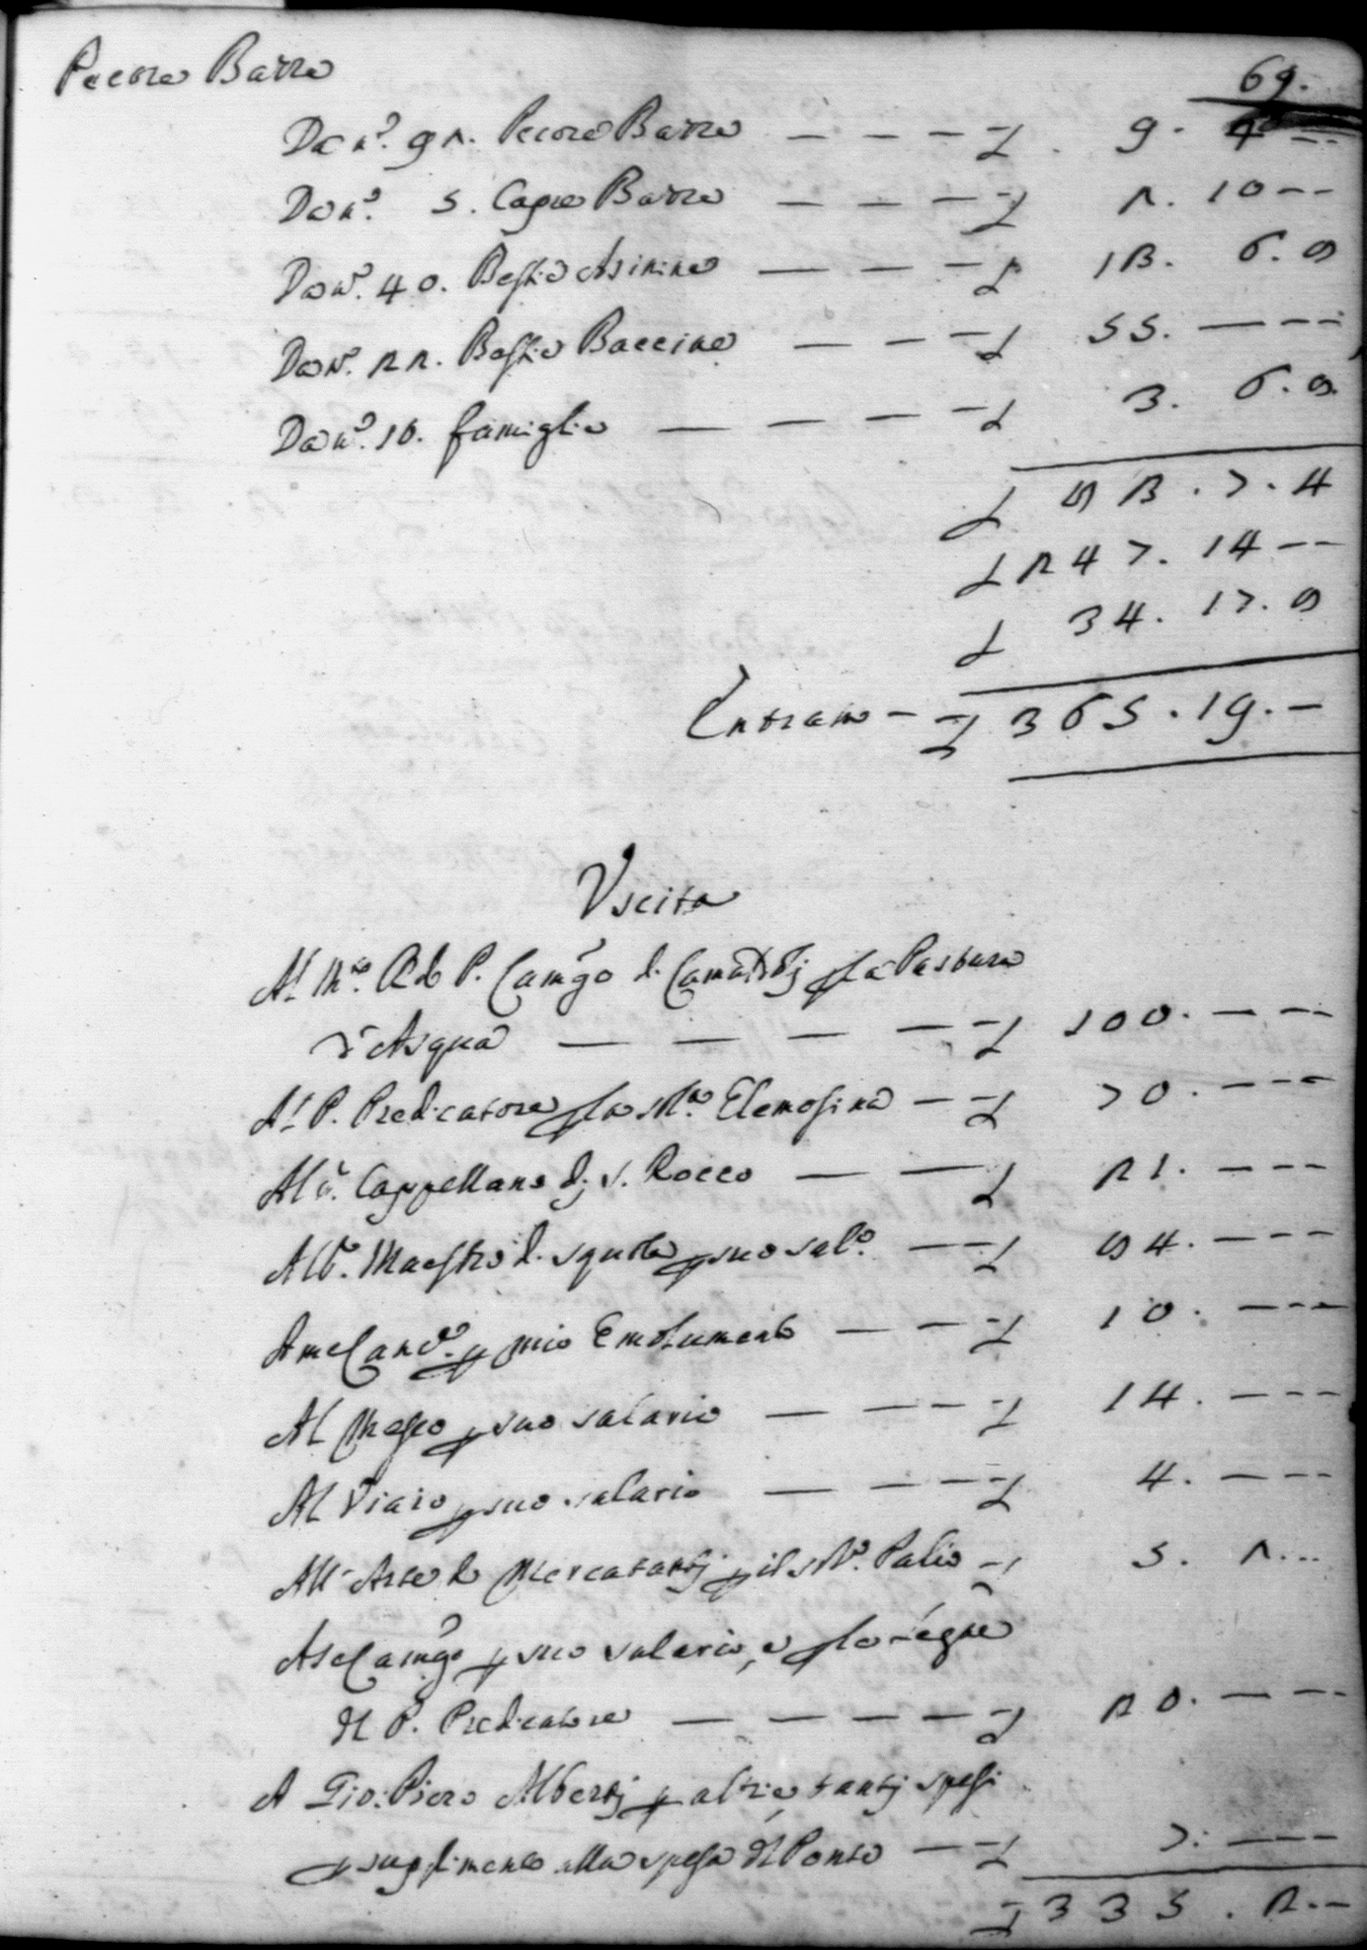 Pecore Barre
69.
Da n.º 92. Pecore Barre — — — £ 9. 4 --
Da n.º 5. Capre Barre — — — £ 2. 10 --
Da n.º 40. Bestie Asinine — — — £ 13. 6. 8
Da n.º 22. Bestie Baccine — — — £ 55. — --
Da n.º 10. famiglie — — — — £ 3. 6. 8.
£ 83. 7. 4
£ 247. 14 --
£ 34. 17. 8
Entrano — £ 365. 19. —
Uscita
Al P. Camgo p la Pastura
d'Asqua — — — — £ 100. — --
Al P. Predicatore p la sta. Elemosina — £ 70. ---
Al Cappellano dj S. Rocco — — £ 21. ---
Al Maestro di squola p suo sal.º — £ 84. ---
A me Canc.º p mio Emolumento — — £ 10. ---
Al Messo p suo salario — — — £ 14. ---
Al Viaio p suo salario — — — £ 4. — --
All'Arte de Mercatantj p il Palio — 5. 2. --
A se Camgo p suo salario, e p le legne
del P. Predicatore — — — — £ 20. — --
A Gio: Piero Albertj p altre tantj spesi
p suplimento alla spesa del Ponte — £ 7. ---
£ 335. 2. --